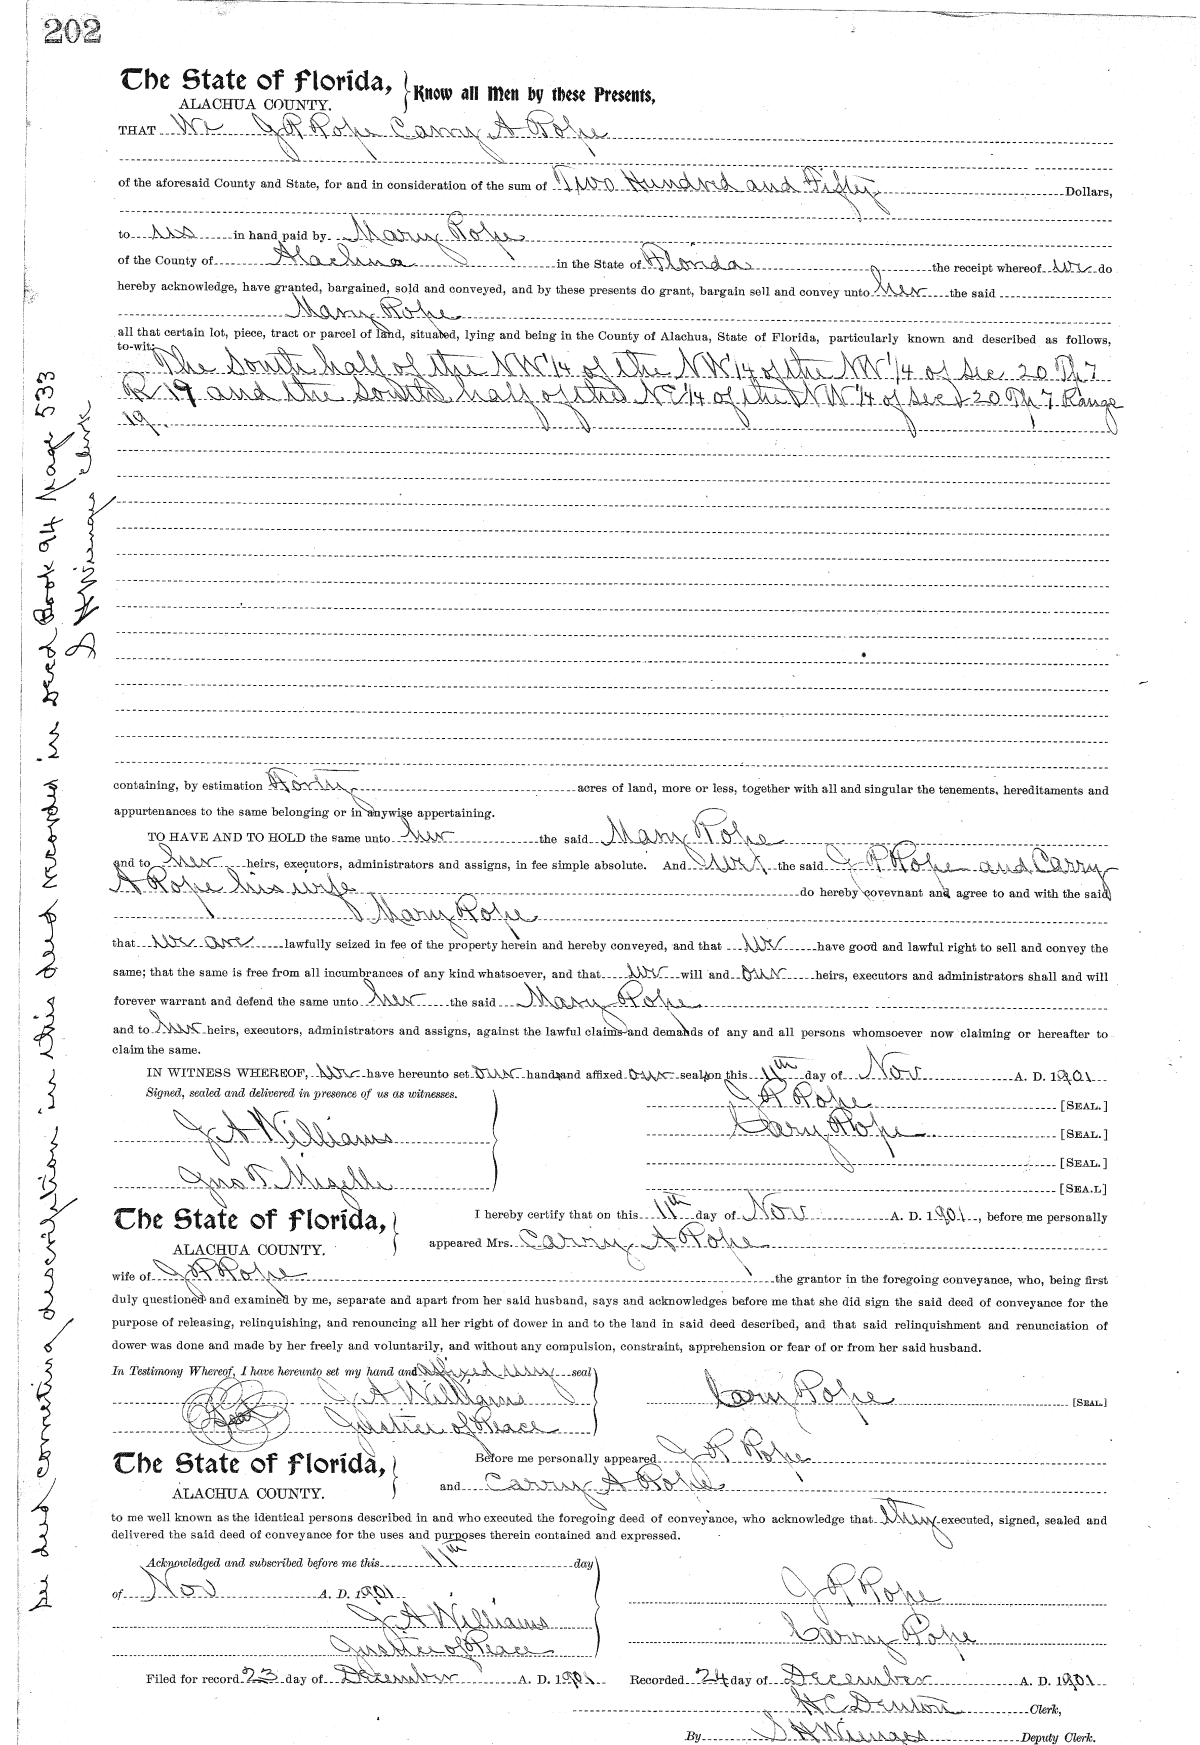 202
The State of Florida,
ALACHUA COUNTY.
Know all Men by these Presents,
THAT We J P Pope Carry A Pope
of the aforesaid County and State, for and in consideration of the sum of Two Hundred and Fifty Dollars,
to us in hand paid by Mary Pope
of the County of Alachua in the State of Florida the receipt whereof we do
hereby acknowledge, have granted, bargained, sold and conveyed, and by these presents do grant, bargain sell and convey unto her the said
Mary Pope
all that certain lot, piece, tract or parcel of land, situated, lying and being in the County of Alachua, State of Florida, particularly known and described as follows,
to-wit:
The South half of the NW 1/4 of the NW 1/4 of the NW 1/4 of Sec 20 Tp 7
R 19 and the South half of the NE 1/4 of the NW 1/4 of Sec 20 Tp 7 Range
19.
containing, by estimation Forty acres of land, more or less, together with all and singular the tenements, hereditaments and
appurtenances to the same belonging or in anywise appertaining.
TO HAVE AND TO HOLD the same unto her the said Mary Pope
and to her heirs, executors, administrators and assigns, in fee simple absolute. And we the said J P Pope and Carry
A Pope his wife do hereby covevnant and agree to and with the said
Mary Pope
that we are lawfully seized in fee of the property herein and hereby conveyed, and that we have good and lawful right to sell and convey the
same; that the same is free from all incumbrances of any kind whatsoever, and that we will and our heirs, executors and administrators shall and will
forever warrant and defend the same unto her the said Mary Pope
and to her heirs, executors, administrators and assigns, against the lawful claims and demands of any and all persons whomsoever now claiming or hereafter to
claim the same.
IN WITNESS WHEREOF, we have hereunto set our hands and affixed our seals on this 11th day of Nov A. D. 1901
Signed, sealed and delivered in presence of us as witnesses.
J P Pope [SEAL.]
J A Williams
Cary Pope [SEAL.]
[SEAL.]
Jno T. Mizelle
[SEA.L]
The State of Florida,
ALACHUA COUNTY.
I hereby certify that on this 11th day of Nov A. D. 1901, before me personally
appeared Mrs. Carry A Pope
wife of J P Pope the grantor in the foregoing conveyance, who, being first
duly questioned and examined by me, separate and apart from her said husband, says and acknowledges before me that she did sign the said deed of conveyance for the
purpose of releasing, relinquishing, and renouncing all her right of dower in and to the land in said deed described, and that said relinquishment and renunciation of
dower was done and made by her freely and voluntarily, and without any compulsion, constraint, apprehension or fear of or from her said husband.
In Testimony Whereof, I have hereunto set my hand and affixed my seal
J A Williams
Cary Pope [SEAL.]
Seal Justice of Peace
The State of Florida,
ALACHUA COUNTY.
Before me personally appeared J P Pope
and Carry A Pope
to me well known as the identical persons described in and who executed the foregoing deed of conveyance, who acknowledge that they executed, signed, sealed and
delivered the said deed of conveyance for the uses and purposes therein contained and expressed.
Acknowledged and subscribed before me this 11th day
of Nov A. D. 1901
J P Pope
J A Williams
Justice of Peace
Carry Pope
Filed for record 23 day of December A. D. 1901
Recorded 24 day of December A. D. 1901
H C Denton Clerk,
By S H Wienges Deputy Clerk.
see deed correcting description in this deed recorded in Deed Book 94 Page 533
S H Wienges Clerk